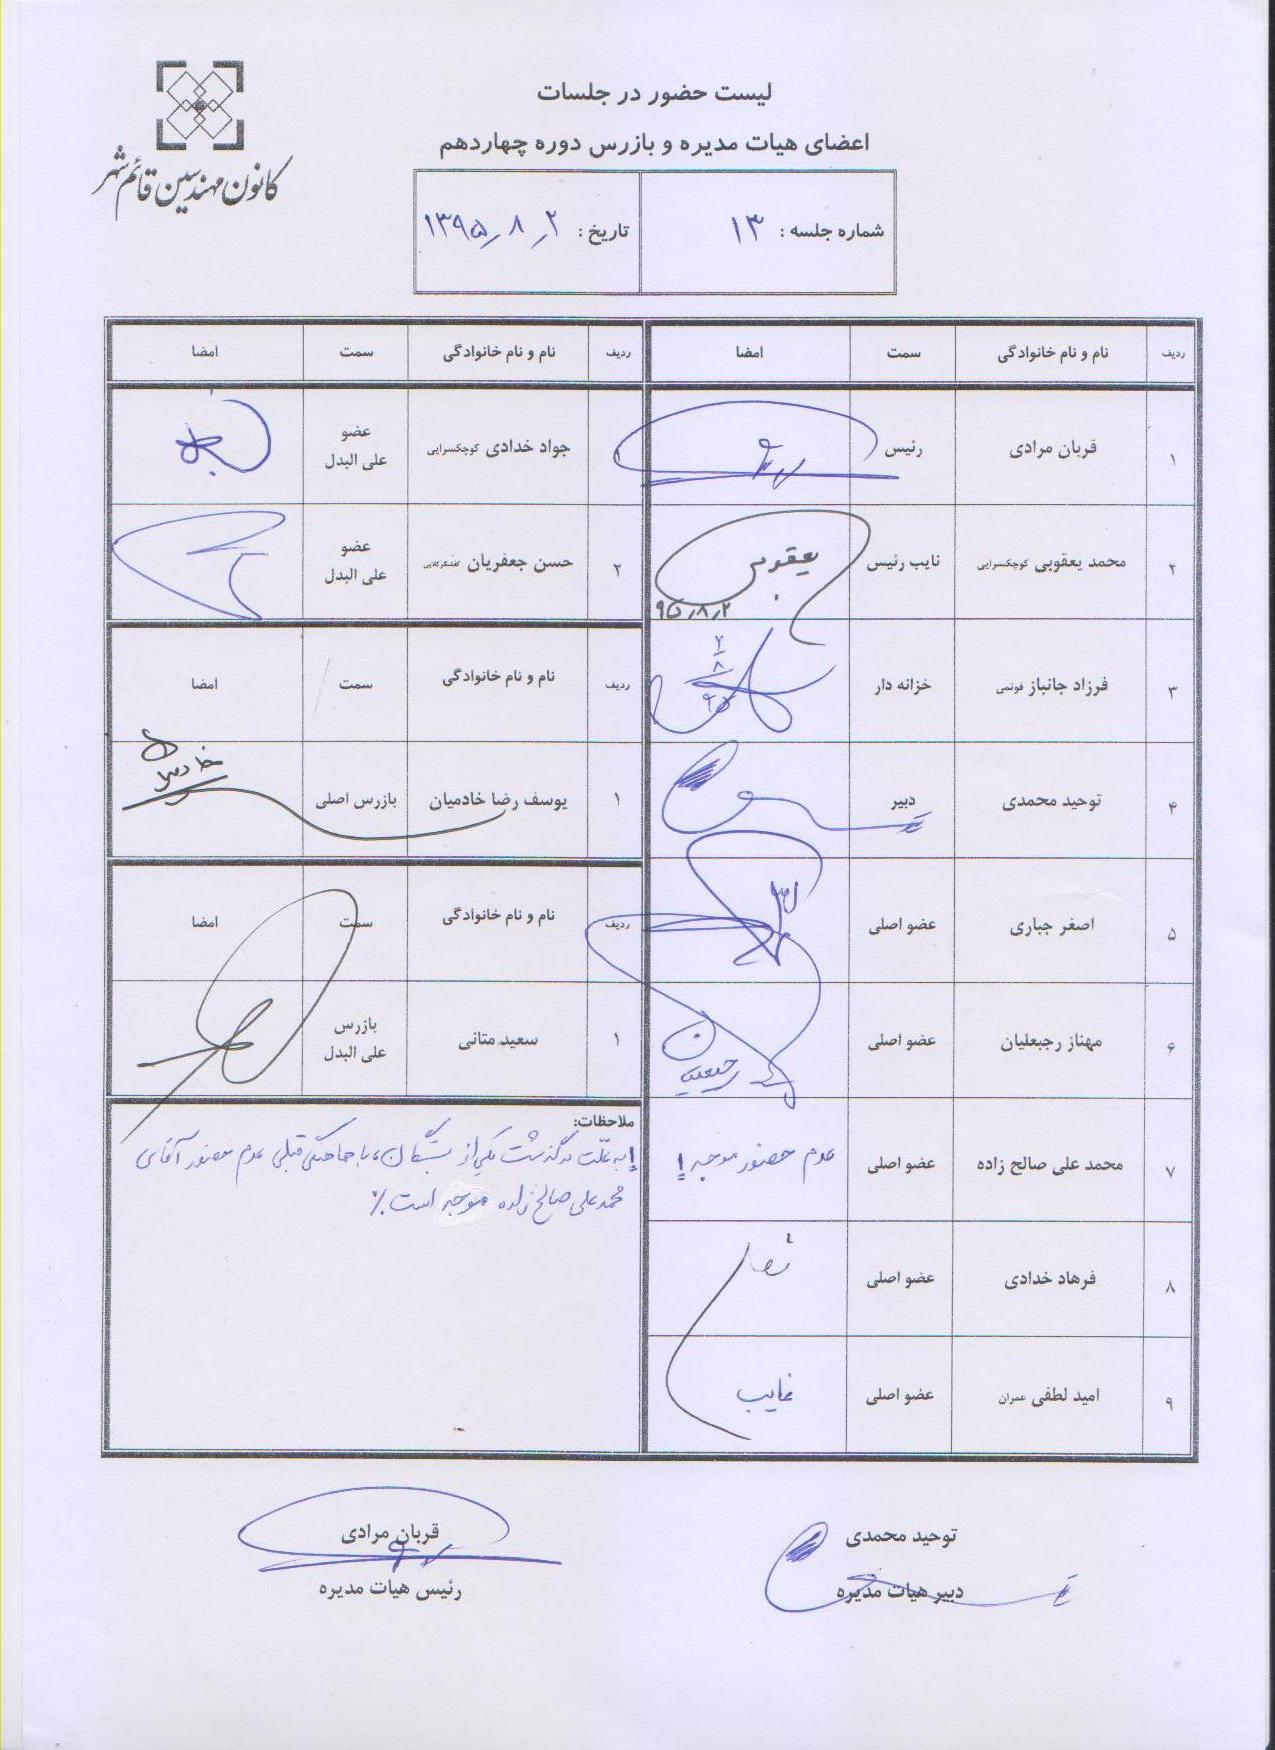 کانون مهندسین قائم شهر
لیست حضور در جلسات
اعضای هیات مدیره و بازرس دوره چهاردهم
شماره جلسه : ۱۳
تاریخ : ۱۳۹۵/۸/۲
ردیف نام و نام خانوادگی سمت امضا
۱ قربان مرادی رئیس
۲ محمد یعقوبی کوچکسرایی نایب رئیس یعقوبی
۹۵/۸/۲
۳ فرزاد جانباز فوتمی خزانه دار ۲/۸/۹۵
۴ توحید محمدی دبیر
۵ اصغر جباری عضو اصلی
۶ مهناز رجبعلیان عضو اصلی
۷ محمد علی صالح زاده عضو اصلی عدم حضور موجه ۱
۸ فرهاد خدادی عضو اصلی
۹ امید لطفی عمران عضو اصلی غایب
ردیف نام و نام خانوادگی سمت امضا
۱ جواد خدادی کوچکسرایی عضو
علی البدل
۲ حسن جعفریان کفشگرکلایی عضو
علی البدل
ردیف نام و نام خانوادگی سمت امضا
۱ یوسف رضا خادمیان بازرس اصلی
ردیف نام و نام خانوادگی سمت امضا
۱ سعید متانی بازرس
علی البدل
ملاحظات:
۱ به علّت درگذشت یکی از بستگان، با هماهنگی قبلی عدم حضور آقای
محمد علی صالح زاده موجه است٪
توحید محمدی
دبیر هیات مدیره
قربان مرادی
رئیس هیات مدیره